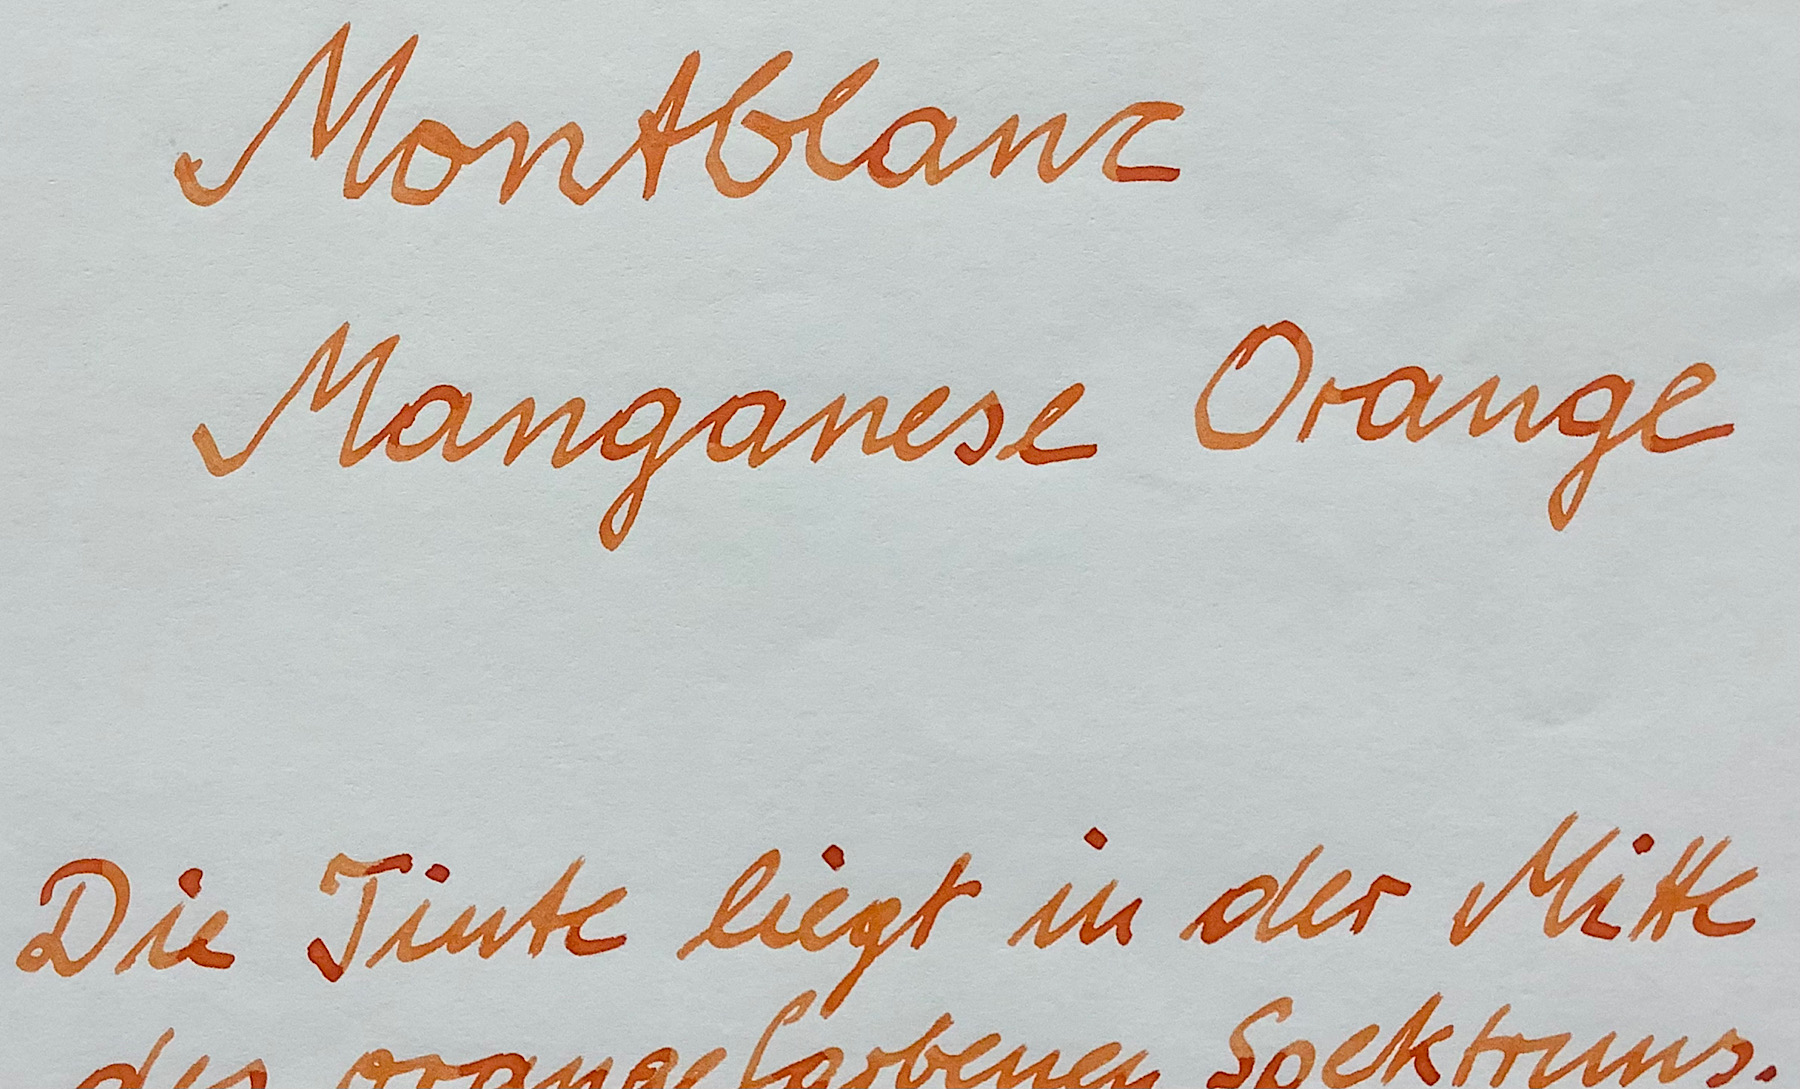 Montblanc
Manganese Orange
Die Tinte liegt in der Mitte
des orangefarbenen Spektrums.